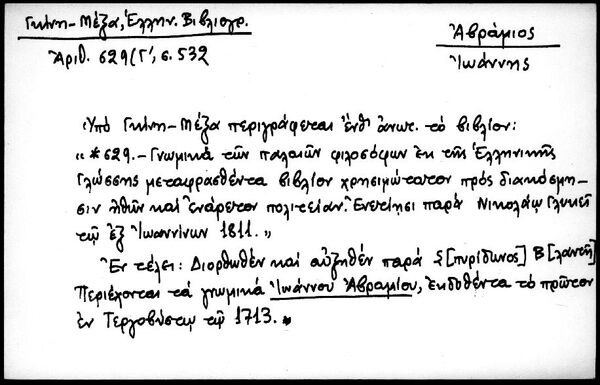 Γκίνη-Μέξα, Ἑλλην. Βιβλιογρ.
Ἀριθ. 629 (Γ', σ. 532
Ἀβράμιος
Ἰωάννης
Ὑπό Γκίνη-Μέξα περιγράφεται ἔνθ' ἀνωτ. τὸ βιβλίον:
«*629.- Γνωμικὰ τῶν παλαιῶν φιλοσόφων ἐκ τῆς Ἑλληνικῆς
Γλώσσης μεταφρασθέντα βιβλίον χρησιμώτατον πρὸς διακόσμη-
σιν ἠθῶν καὶ ἐνάρετον πολιτείαν. Ἐνετίῃσι παρὰ Νικολάῳ Γλυκεῖ
τῷ ἐξ Ἰωαννίνων 1811.»
Ἐν τέλει: Διορθωθὲν καὶ αὐξηθὲν παρὰ Σ[πυρίδωνος] Β[λαντῆ]
Περιέχονται τὰ γνωμικὰ Ἰωάννου Ἀβραμίου, ἐκδοθέντα τὸ πρῶτον
ἐν Τεργοβύστῳ τῷ 1713.